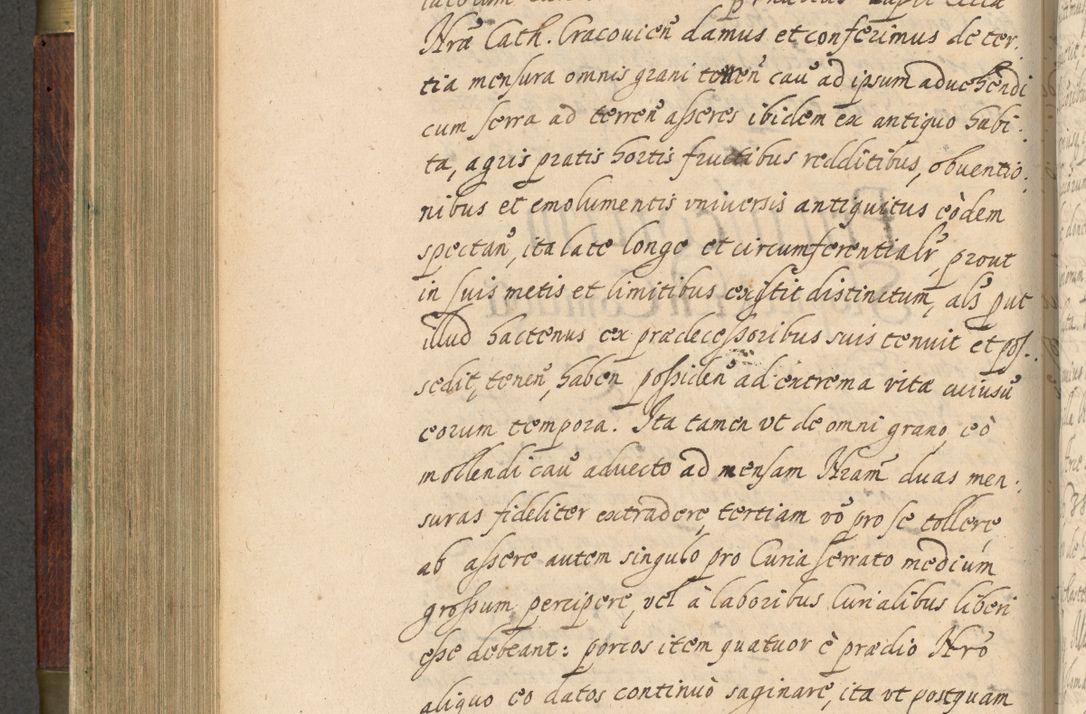 Nræ Cath. Cracouien̄ damus et conferimus de ter.
tia mensura omnis grani teren̄ cau̅ ad ipsum aduehendi
cum serra ad terren̄ asseres ibidem ex antiquo habi-
ta, agris pratis hortis fructibus redditibus, obuentio.
nibus et emolumentis vniuersis antiquitus eòdem
spectan̄, ita late longe et circumferentialr̄, prout
in suis metis et limitibus existit distinctum, als̄ put
illud hactenus ex prædecessoribus suis tenuit et pos..
sedit, tenen̄, haben̄ possiden̄ ad extrema vitæ cuiusū
eorum tempora. Ita tamen vt de omni grano eò
mollendi cau̅ aduecto ad mensam Nram̄ duas men.
suras fideliter extradere, tertiam vō pro se tollere
ab assere autem singulo pro Curia serrato medium
grossum percipere, vel à laboribus Curialibus liberi
esse debeant: porcos item quatuor è prædio Nrō
aliquo eo datos continuò saginare, ita vt postquam